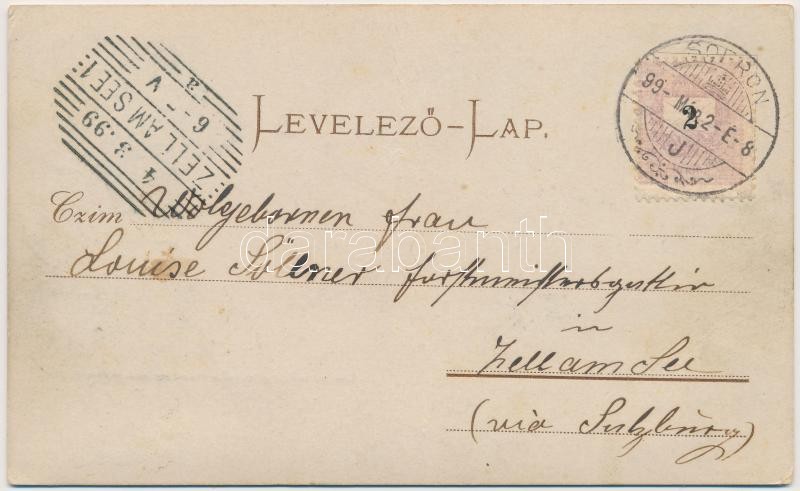 SOPRON
99-
2-E-8
J
2
ZELL AM SEE 1
4 3.99
6-- V
a
LEVELEZŐ-LAP.
Czim Wolgebornen frau
Louise Söllner forstmeistersgattin
in
Zell am See
(via Salzburg)
darabanth